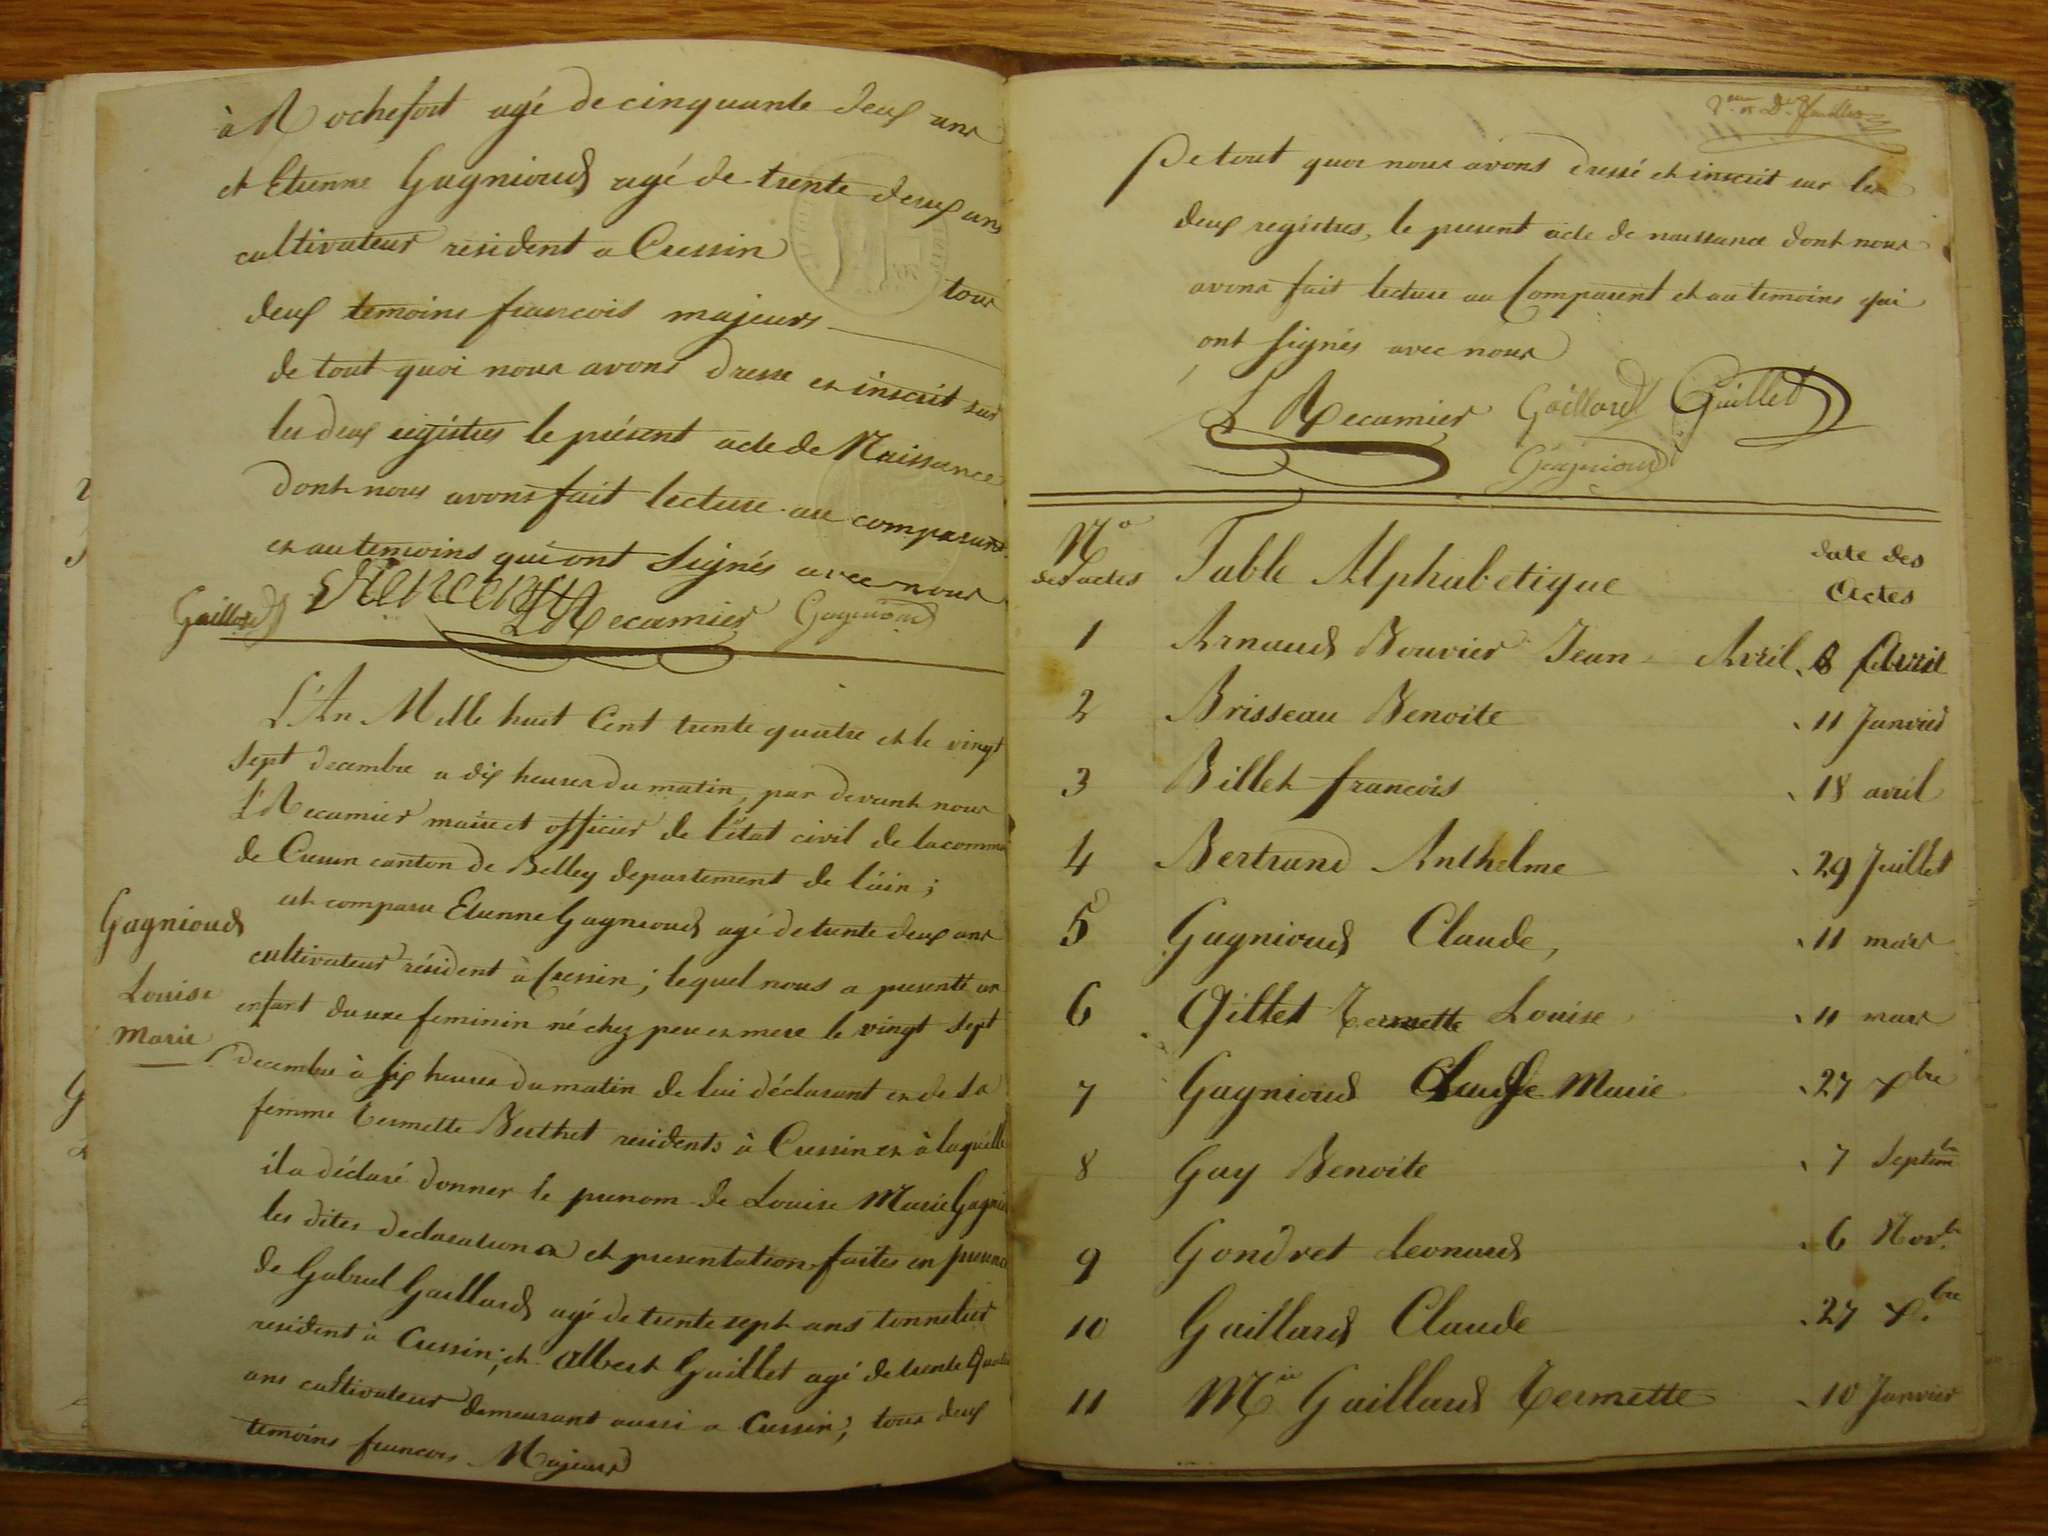 à Rochefort agé de cinquante deux ans
et Etienne Gagnioud agé de trente deux ans
cultivateur resident a Cressin tous
deux temoins francois majeurs
de tout quoi nous avons dressé et inscrit sur
les deux registres le présent acte de Naissance
dont nous avons fait lecture au comparant
et au temoins qui ont signés avec nous
Gaillard L Recamier Gagnioud
L'An Mille huit Cent trente quatre et le vingt
sept decembre a dix heures du matin, par devant nous
L Recamier maire et officier de l'état civil de la comm
de Cressin canton de Belley departement de l'ain ;
est comparu Etienne Gagnioud agé de trente deux ans
cultivateur résident à Cressin ; lequel nous a presenté un
Gagnioud
Louise
Marie
enfant du sexe feminin né chez pere et mere le vingt sept
decembre à six heures du matin de lui déclarant et de sa
femme Termette Berthet residents à Cressin et à laquelle
il a déclaré donner le prenom de Louise Marie Gagnio
les dites declarations et presentation faites en presence
de Gabriel Gaillard agé de trente sept ans tonnelier
resident à Cressin ; et Albert Guillet agé de trente quatre
ans cultivateur demeurant aussi a Cressin ; tous deux
temoins francois Majeurs
De tout quoi nous avons dressé et inscrit sur les
deux registres, le present acte de naissance dont nous
avons fait lecture au Comparent et au temoins qui
ont signés avec nous
L Recamier Gaillard Guillet
Gagnioud
No des actes Table Alphabetique date des Actes
1 Arnaud Bouvier Jean Avril 8 Avril
2 Brisseau Benoite 11 Janvier
3 Billet francois 18 avril
4 Bertrand Anthelme 29 Juillet
5 Gagnioud Claude, 11 mars
6 Gillet Termette Louise 11 mars
7 Gagnioud Marie 27 xbre
8 Guy Benoite 7 Septem
9 Gondret Leonard 6 Nov.
10 Gaillard Claude 27 x.bre
11 M Gaillard Termette 10 Janvier